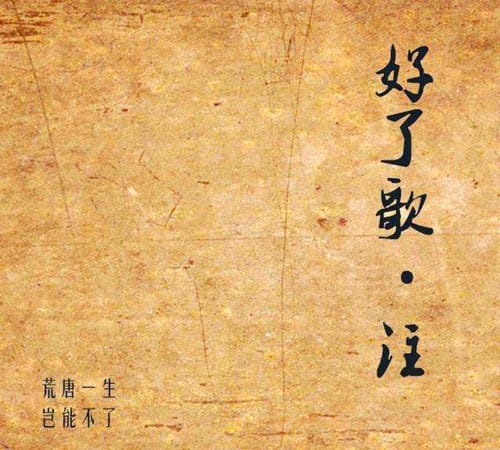 好了歌·注
荒唐一生
岂能不了